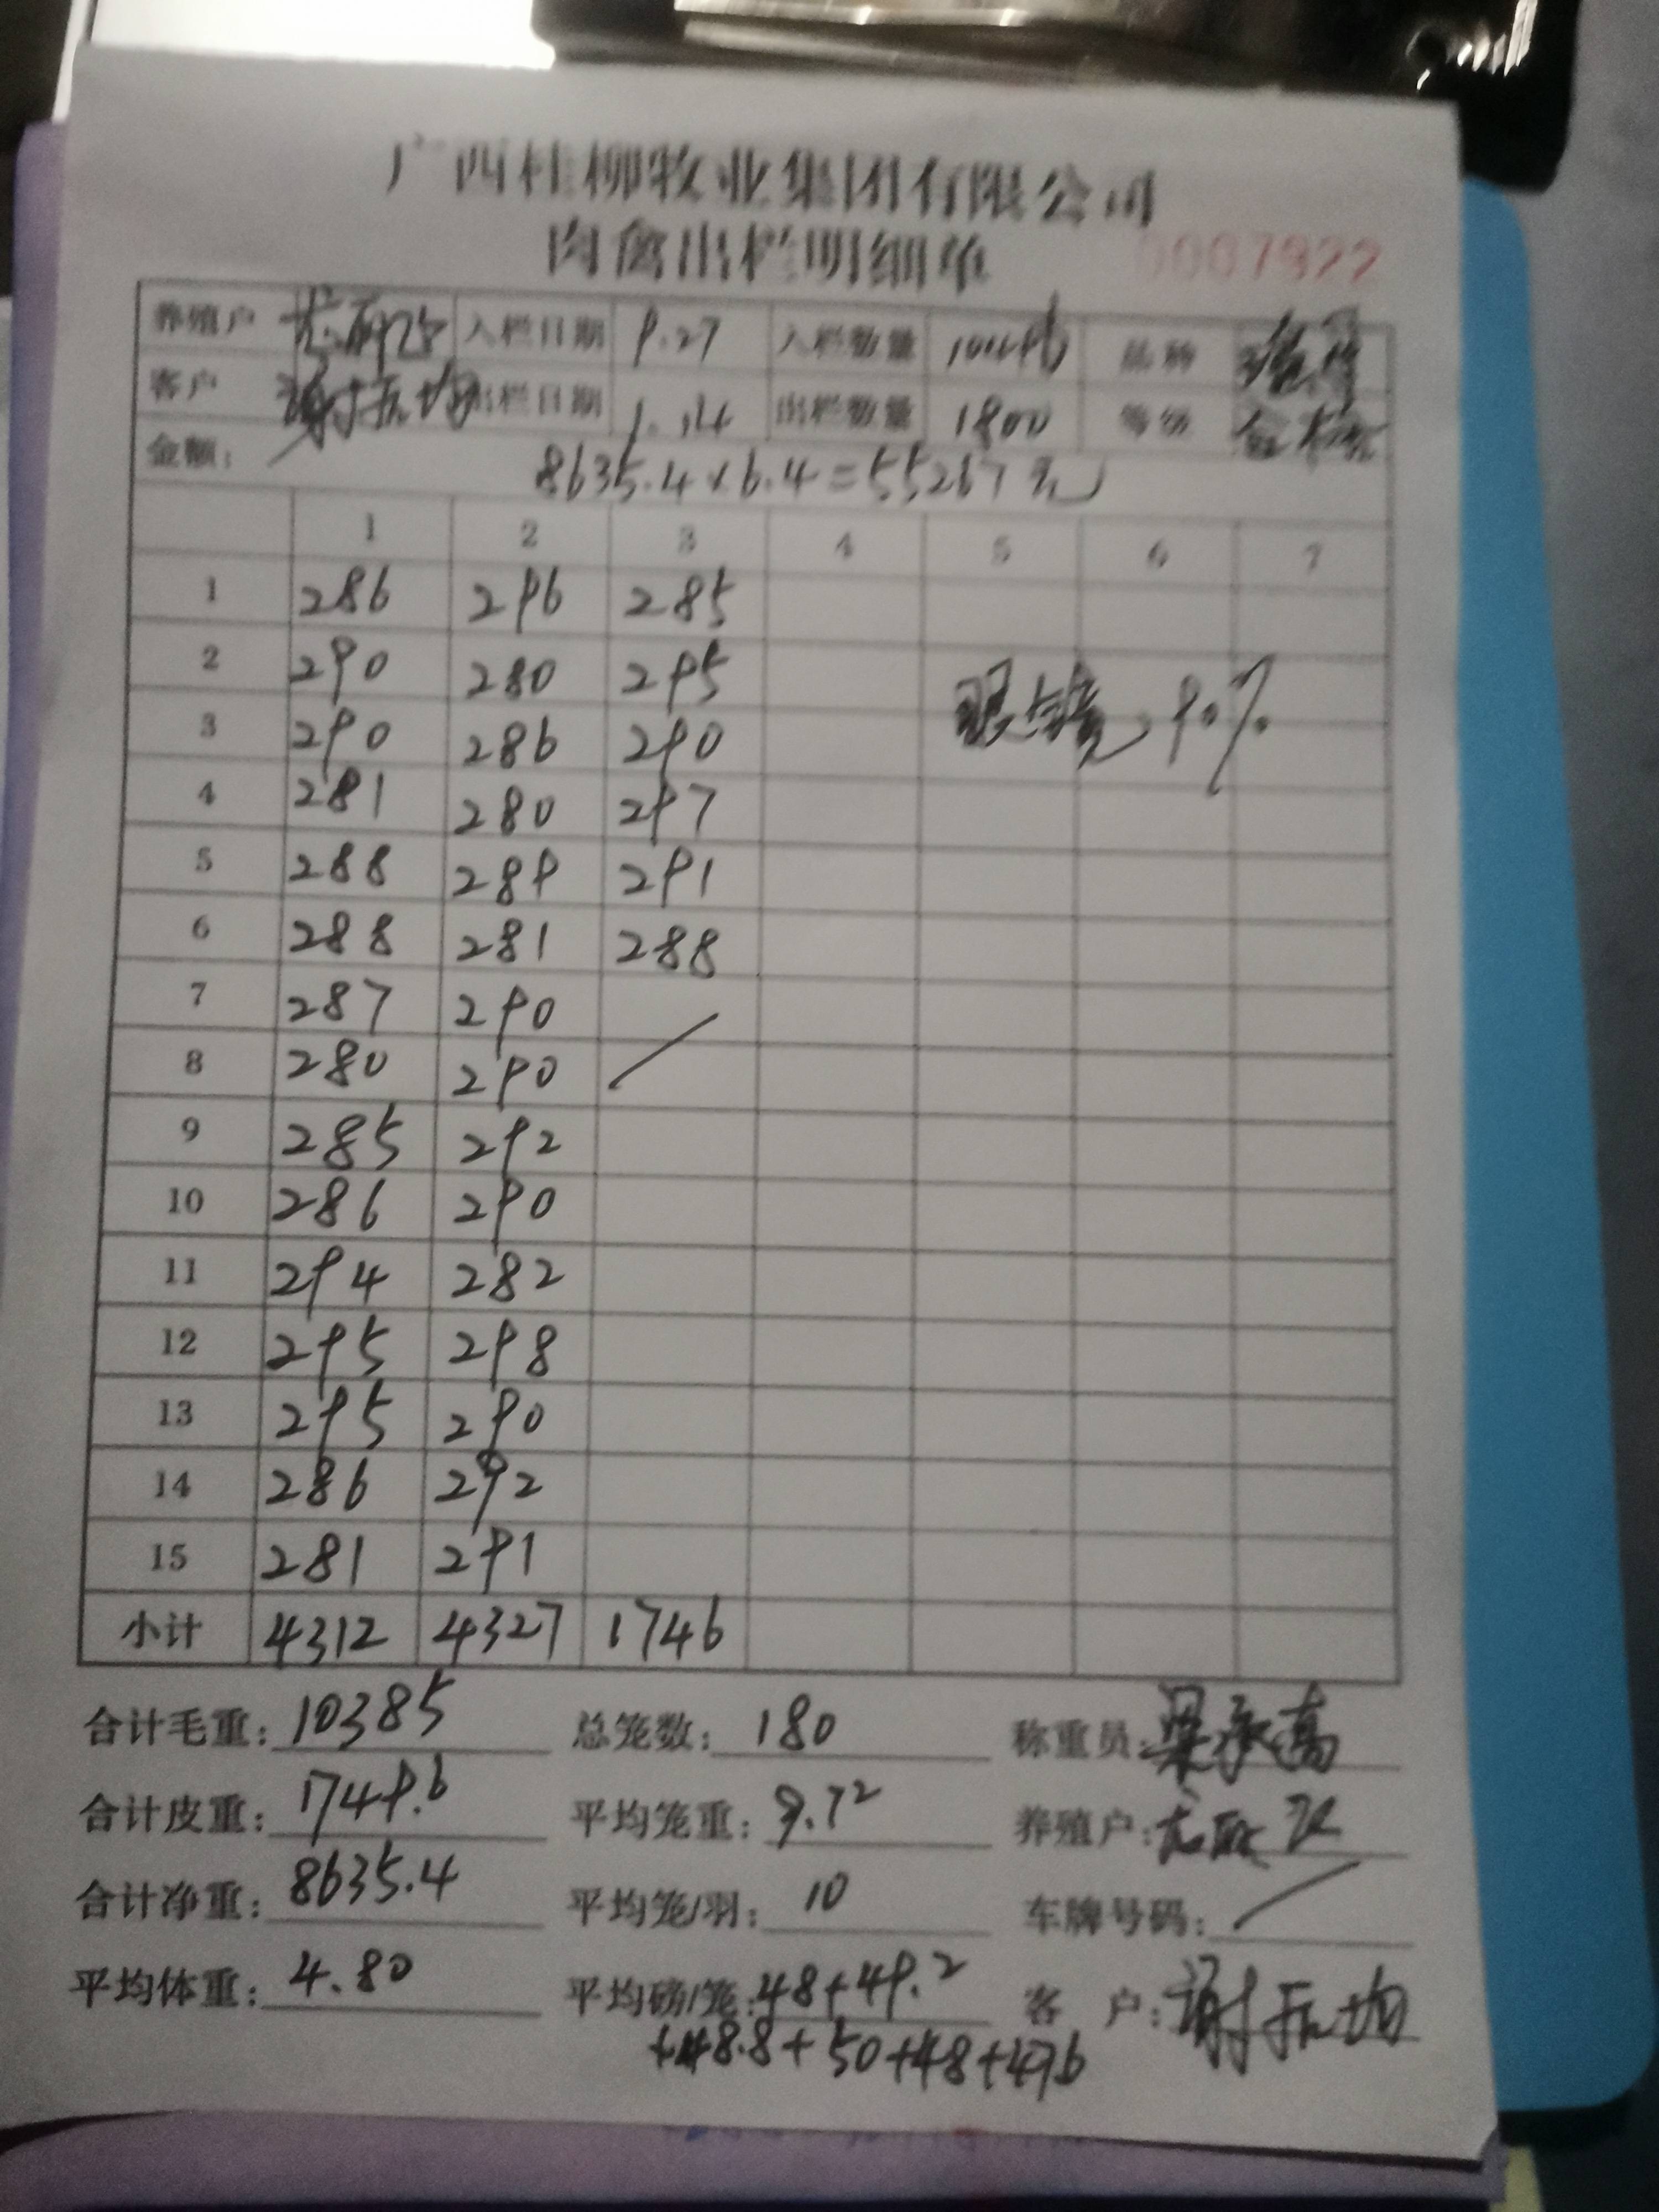 广西桂柳牧业集团有限公司
肉禽出栏明细单 0007922
养殖户 入栏日期 9.27 入栏数量 品种
客户 谢振均 出栏日期 1.14 出栏数量 1800 等级 合格
金额: 8635.4×6.4=55267元
1 2 3 4 5 6 7
1 286 296 285
2 290 280 295
3 290 286 290 眼镜 90%
4 281 280 297
5 288 289 291
6 288 281 288
7 287 290
8 280 290
9 285 292
10 286 290
11 294 282
12 295 298
13 295 290
14 286 292
15 281 291
小计 4312 4327 1746
合计毛重: 10385 总笼数: 180 称重员:
合计皮重: 1749.6 平均笼重: 9.72 养殖户:
合计净重: 8635.4 平均笼/羽: 10 车牌号码:
平均体重: 4.80 平均磅/笼: 48+49.2 客 户: 谢振均
+48.8+50+48+47.6